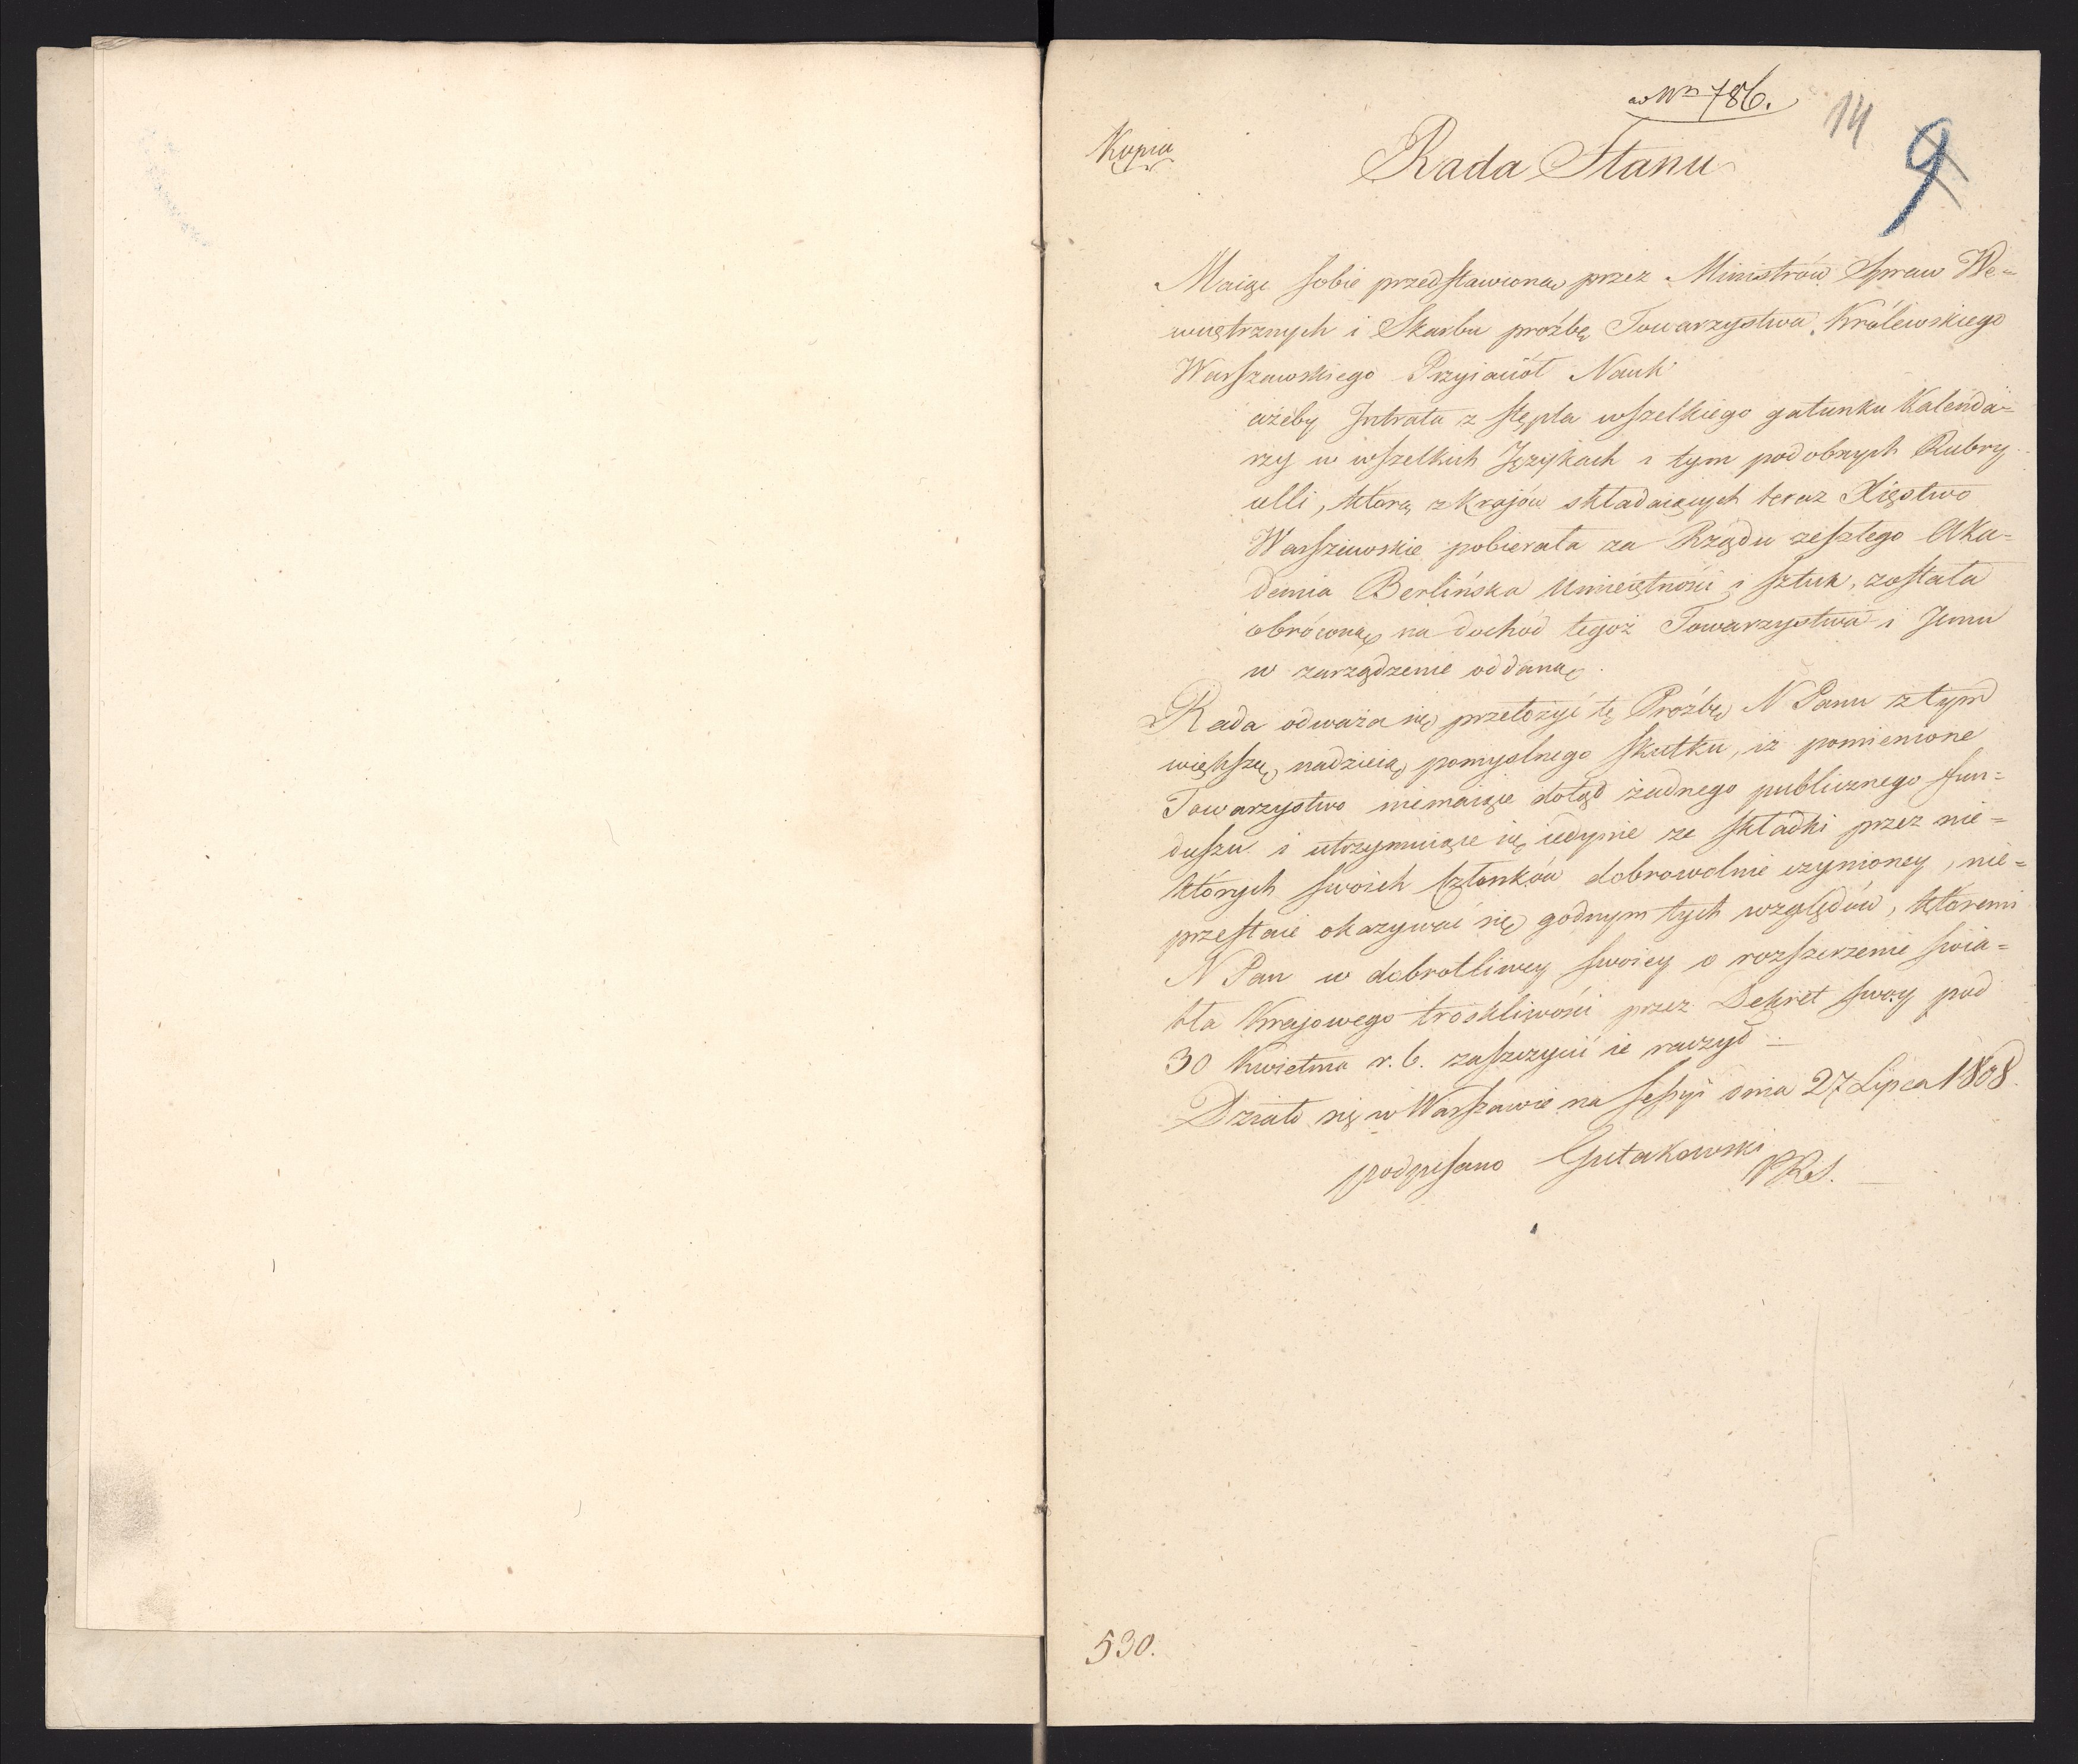 ad Nrm 786.
14
9
Kopia
Rada Stanu
Maiąc sobie przedstawioną przez Ministrów Spraw We=
wnętrznych i Skarbu proźbę Towarzystwa Królewskiego
Warszawskiego Przyiaciół Nauk
ażeby Intrata z stępla wszelkiego gatunku Kalenda=
rzy w wszelkich Językach i tym podobnych Rubry
celli, którą z Krajów składaiących teraz Xięstwo
Warszawskie pobierała za Rządu zeszłego Aka=
demia Berlińska Umieiętności i sztuk, została
obróconą na dochód tegoż Towarzystwa i Jemu
w zarządzenie oddaną.
Rada odważa się przełożyć tę Proźbę N Panu z tym
większą nadzieią pomyslnego skutku, iż pomienione
Towarzystwo niemaiące dotąd żadnego publicznego fun=
duszu i utrzymuiące się iedynie ze składki przez nie=
których swoich Członków dobrowolnie czynioney, nie=
przestaie okazywać się godnym tych względów, któremi
N Pan w dobrotliwey swoiey o rozszerzenie swia=
tła Krajowego troskliwości przez Dekret swoy pod
30 Kwietnia r. b. zaszczycić ie raczył.
Działo się w Warszawie na Sessyi dnia 27 Lipca 1808.
podpisano Gutakowski
PRS.
530.